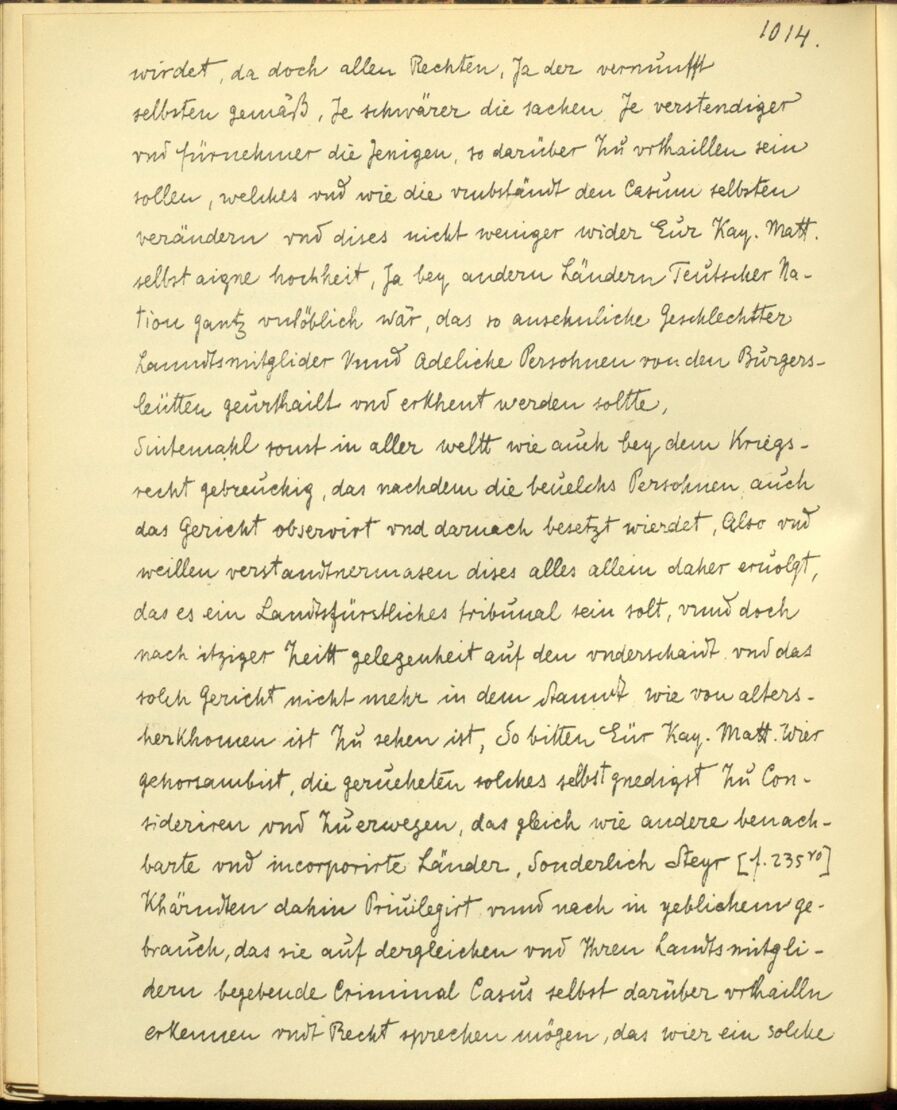 1014.
wirdet, da doch allen Rechten, Ja der vernunfft
selbsten gemäß, Je schwärer die sachen Je verstendiger
vnd fürnehmer die Jenigen, so darüber Zu vrthaillen sein
sollen, welches vnd wie die vmbständt den Casum selbsten
verändern vnd dises nicht weniger wider Eur Kay. Matt.
selbst aigne hochheit, Ja bey andern Ländern Teutscher Na-
tion gantz vnlöblich wär, das so ansehnliche Geschlechtter
Lanndtsmitglider Vnnd Adeliche Persohnen von den Burgers-
leütten geurthailt vnd erkhent werden soltte,
Sintemahl sonst in aller weltt wie auch bey dem Kriegs-
recht gebreuchig, das nachdem die beuelchs Persohnen auch
das Gericht observirt vnd darnach besetzt wierdet, Also vnd
weillen verstandtnermasen dises alles allein daher eruolgt,
das es ein Landtsfürstliches tribunal sein solt, vnnd doch
nach itziger Zeitt gelegenheit auf den vnderschaidt vnd das
solch Gericht nicht mehr in dem stanndt wie von alters-
herkhomen ist Zu sehen ist, So bitten Eür Kay. Matt. Wier
gehorsambist, die gerueheten solches selbst gnedigst Zu Con-
sideriren vnd Zu erwegen, das gleich wie andere benach-
barte vnd incorporirte Länder, Sonderlich Steyr [f. 235 vo]
Khärndten dahin Priuilegirt vnnd nach in yeblichem ge-
brauch, das sie auf dergleichen vnd Ihren Landtsmitgli-
dern begebende Criminal Casus selbst darüber vrthailln
erkennen vndt Recht sprechen mögen, das wier ein solche